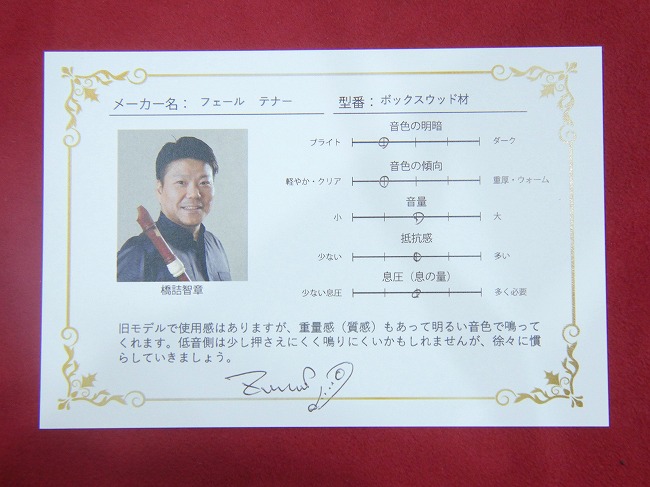 メーカー名： フェール　テナー　型番：ボックスウッド材
音色の明暗
ブライト　ダーク
音色の傾向
軽やか・クリア　重厚・ウォーム
音量
小　大
抵抗感
少ない　多い
息圧（息の量）
少ない息圧　多く必要
橋詰智章
旧モデルで使用感はありますが、重量感（質感）もあって明るい音色で鳴って
くれます。低音側は少し押さえにくく鳴りにくいかもしれませんが、徐々に慣
らしていきましょう。